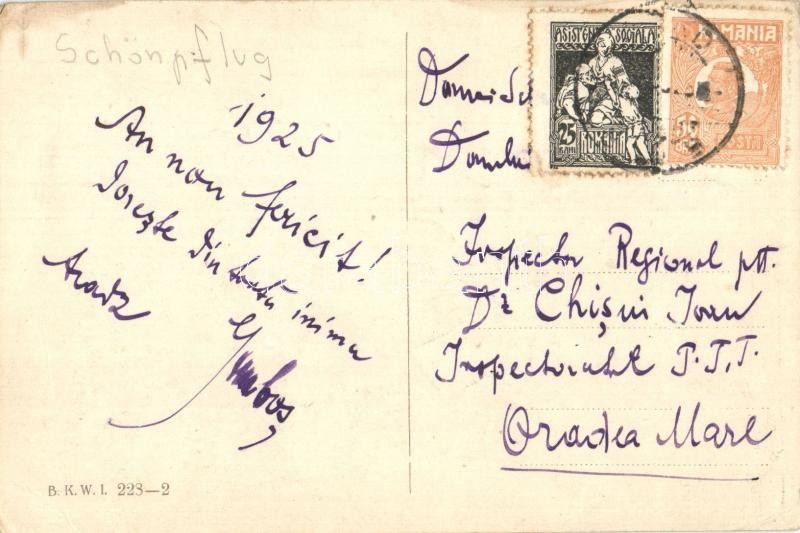 Schönpflug
1925
An nou fericit!
Dorește din toată inima
Arad
B. K. W. I. 223—2
ASISTENȚA SOCIALA
25 BANI
ROMANIA
50
Domnului
Inspector Regional ptt.
Dr Chișiu Ioan
Inspectoratul P.T.T.
Oradea Mare